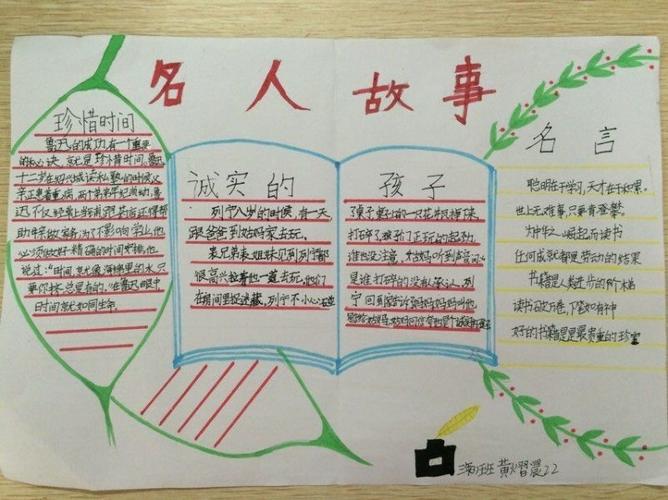 名人故事
珍惜时间
鲁迅的成功,有一个重要
的秘诀,就是珍惜时间。鲁迅
十二岁在绍兴城读私塾的时候,父
亲正患着重病,两个弟弟年纪尚幼,鲁
迅不仅经常上当铺,跑药店,还得帮
助母亲做家务;为了不影响学业,他
必须做好精确的时间安排。他
说过:“时间,就像海绵里的水,只
要你挤,总是有的。”在鲁迅眼中
时间就如同生命。
诚实的
列宁八岁的时候,有一天
跟爸爸到姑妈家去玩。
表兄弟表姐妹见到列宁都
很高兴,拉着他一道去玩。他们
在房间里捉迷藏,列宁不小心
孩子
了桌子,桌上的一只花瓶掉下来,
打碎了。孩子们正玩的起劲,
谁也没注意。大姑妈听到声音
是谁打碎的没有人承认。列
宁回到
名言
聪明在于学习,天才在于积累。
世上无难事,只要肯登攀。
为中华之崛起而读书
任何成就都是劳动的结果
书籍是人类进步的阶梯
读书破万卷,下笔如有神
好的书籍是最贵重的珍宝